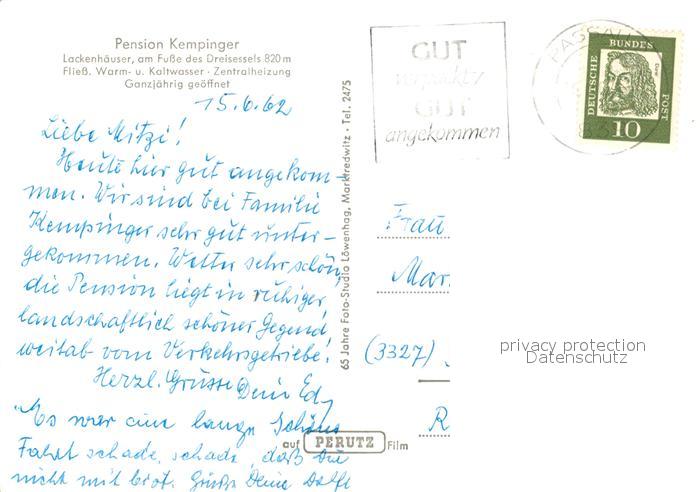 Pension Kempinger
Lackenhäuser, am Fuße des Dreisessels 820 m
Fließ. Warm- u. Kaltwasser · Zentralheizung
Ganzjährig geöffnet
15.6.62
Liebe Mitzi!
Heute hier gut angekom-
men. Wir sind bei Familie
Kempinger sehr gut unter-
gekommen. Wetter sehr schön,
die Pension liegt in ruhiger,
landschaftlich schöner Gegend,
weitab vom Verkehrsgetriebe!
Herzl. Grüsse Dein
Es war eine lange schöne
Fahrt schade, schade, daß Du
nicht mit bist. Grüße Deine
65 Jahre Foto-Studio Löwenhag, Marktredwitz · Tel. 2475
auf PERUTZ Film
GUT
verpackt/
GUT
angekommen
PASSAU
DEUTSCHE BUNDES POST
Dürer
10
Frau
Mar
(3327)
R
privacy protection
Datenschutz